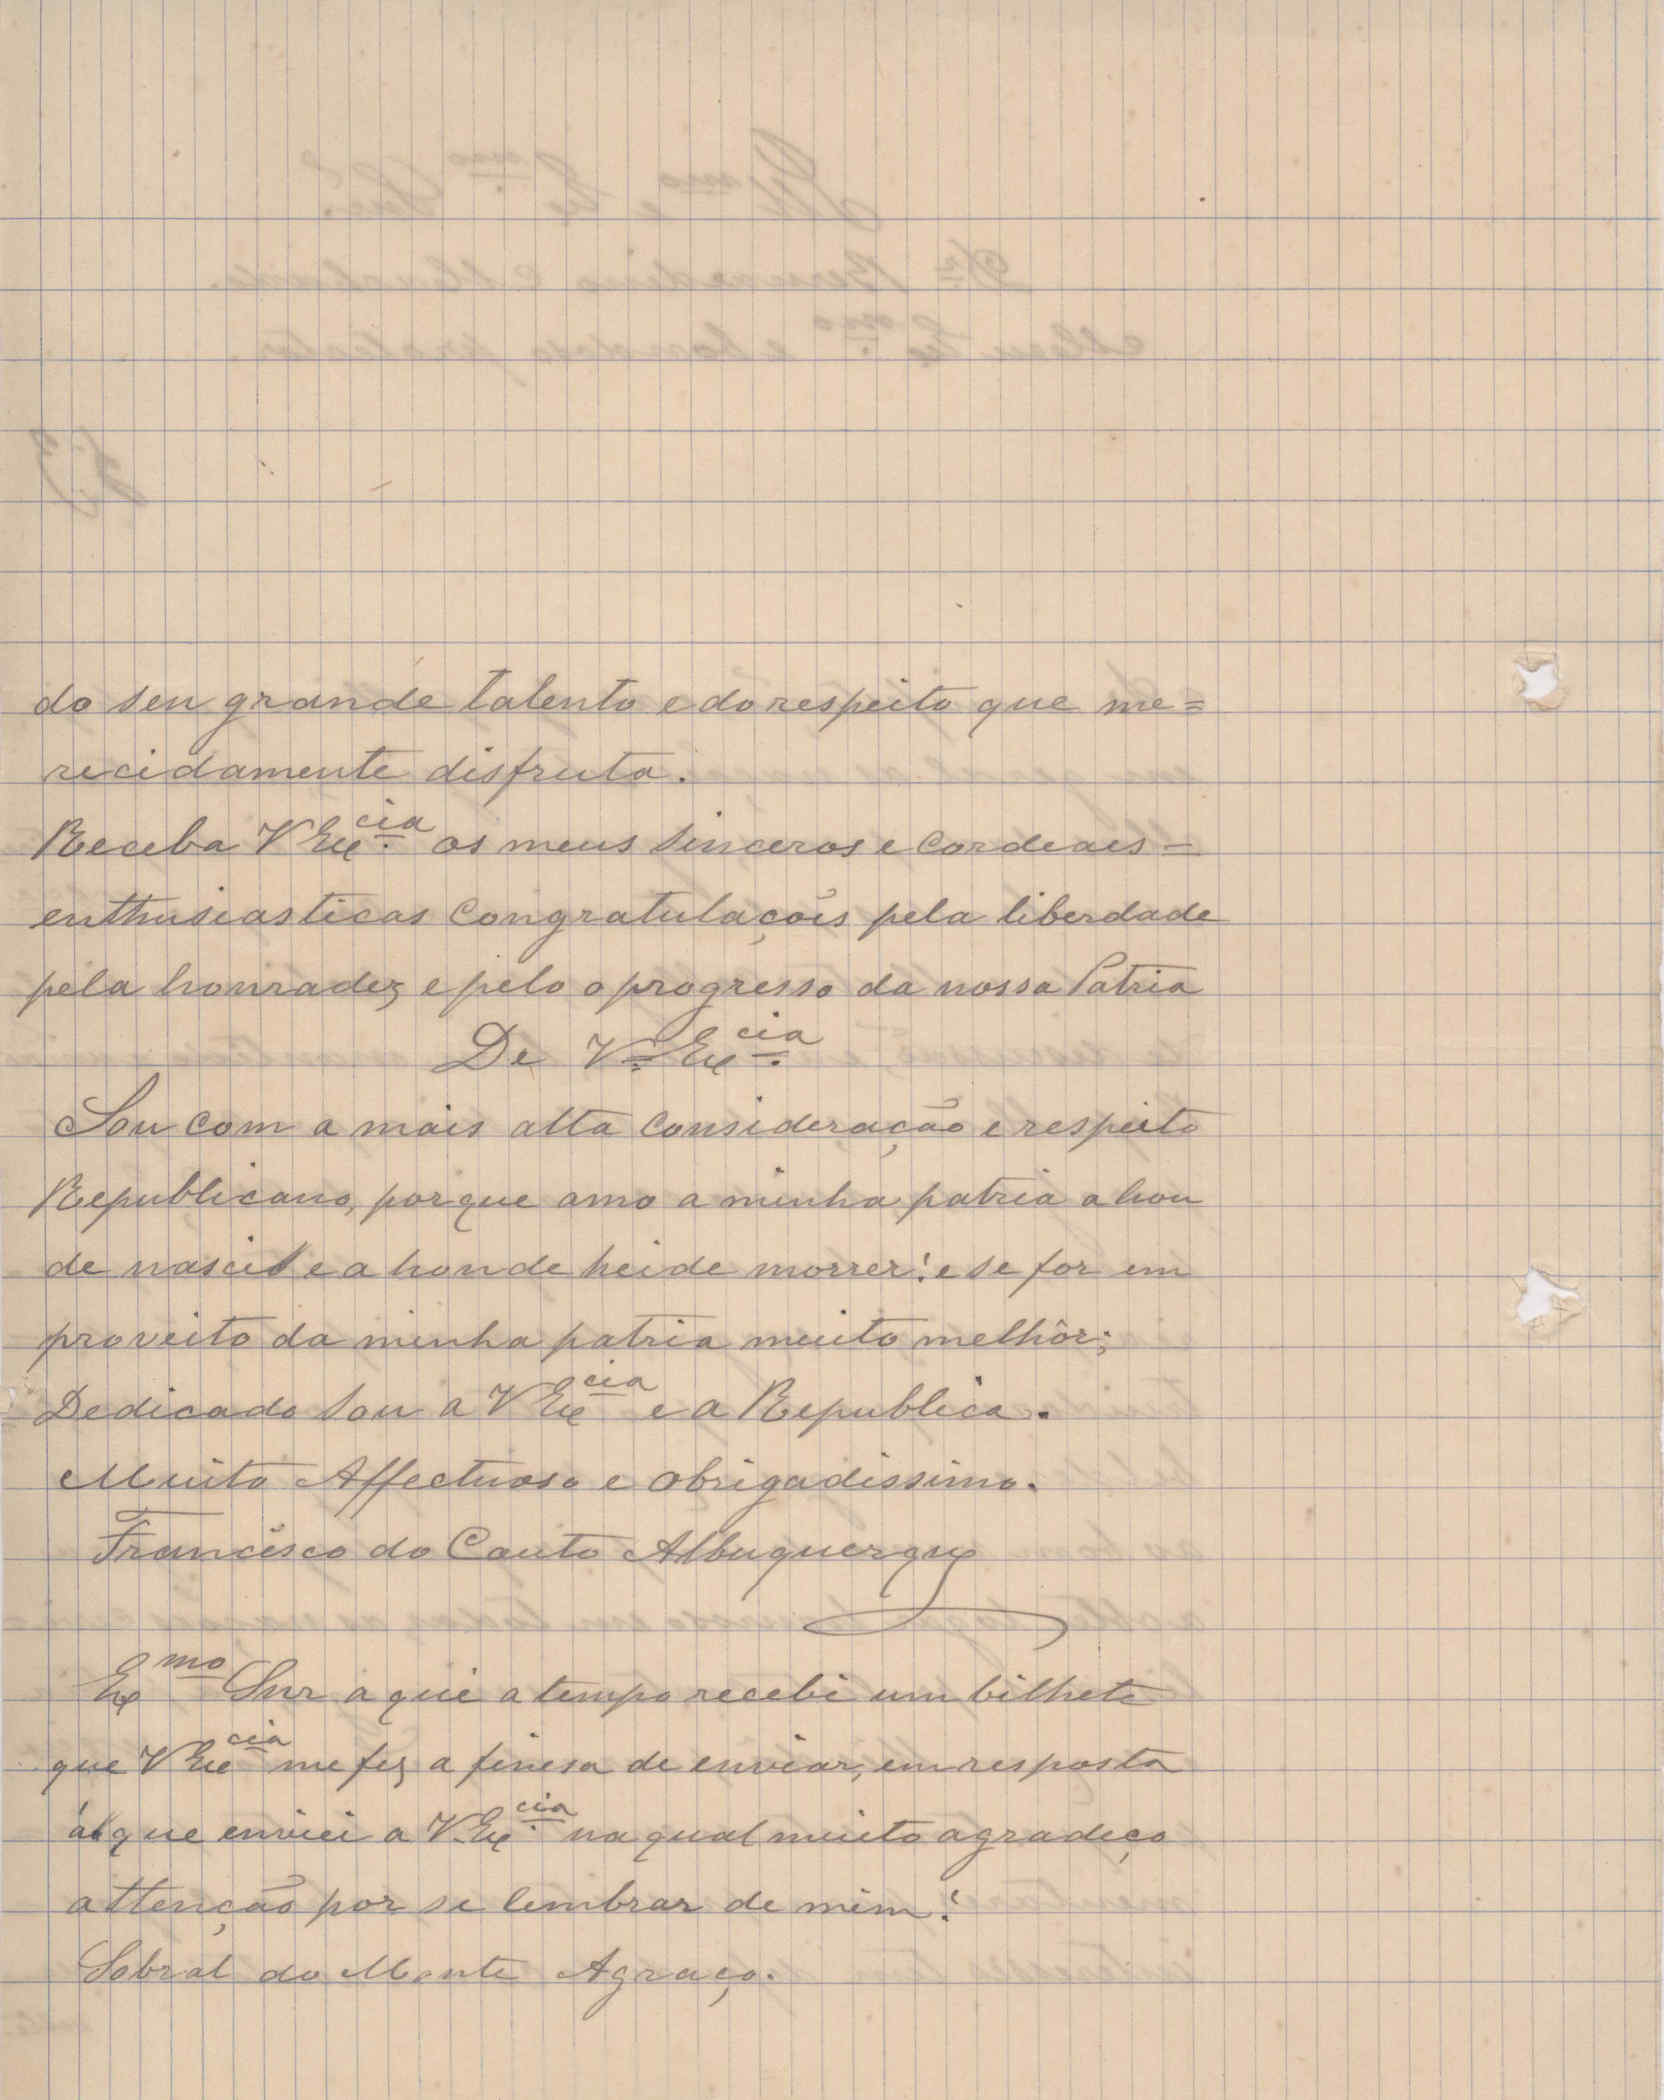 do seu grande talento e do respeito que me=
recidamente disfruta.
Receba V Exᶜⁱᵃ. os meus sinceros e cordeaes –
enthusiasticas congratulações pela liberdade
pela honradez e pelo o progresso da nossa Patria
De V.ª Exᶜⁱᵃ.
Sou com a mais alta consideração e respeito
Republicano, porque amo a minha patria a hon
de nasci e a honde heide morrer! e se for em
proveito da minha patria muito melhôr;
Dedicado sou a V Exᶜⁱᵃ e a Republica.
Muito Affectuoso e obrigadissimo.
Francisco do Couto Albuquerque
Exᵐᵒ Snr aqui a tempo recebi um bilhete
que V Exᶜⁱᵃ me fez a finesa de enviar, em resposta
á que enviei a V. Exᶜⁱᵃ. na qual muito agradeço
attenção por se lembrar de mim!
Sobral do Monte Agraço.